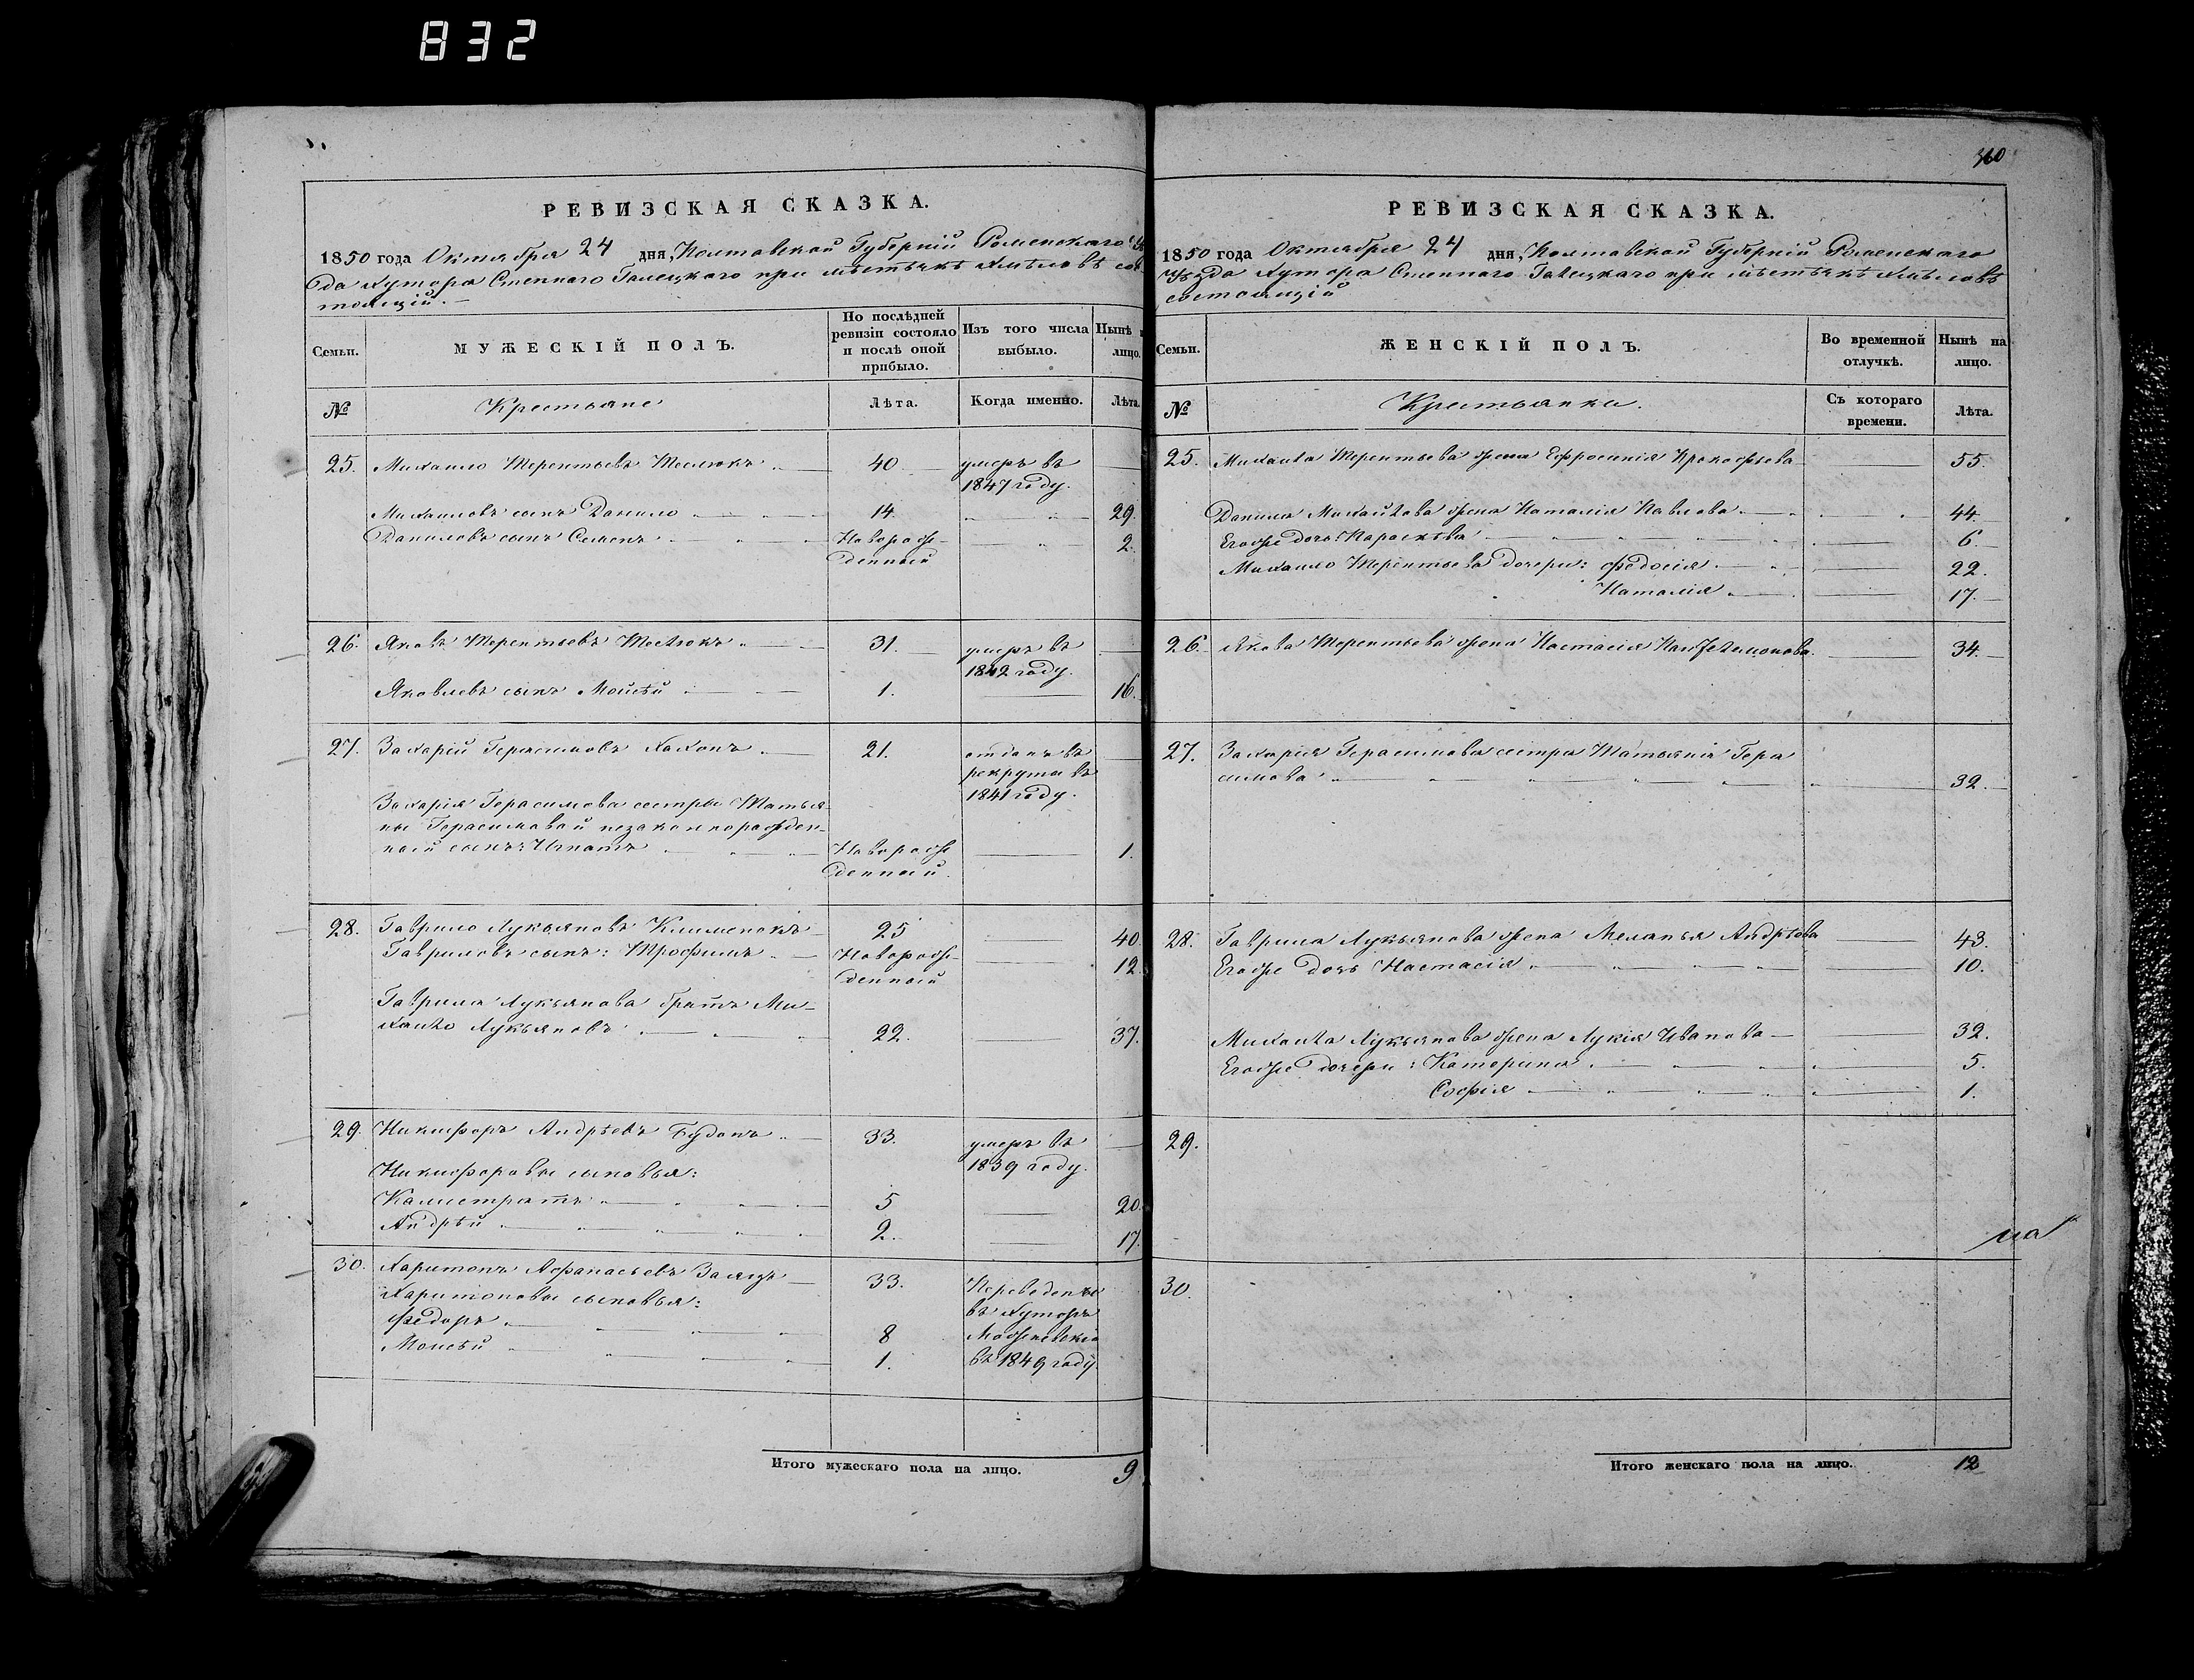 832
РЕВИЗСКАЯ СКАЗКА.
1850 года Октября 24 дня, Полтавской Губерніи Роменскаго Уѣ
да Хутора Степного Галецкаго при мѣстѣчкѣ Хмѣловѣ сос
тоящій.
Семьи.
МУЖЕСКІЙ ПОЛЪ.
По послѣдней ревизіи состояло и послѣ оной прибыло.
Изъ того числа выбыло.
Нынѣ на лицо.
№
Крестьяне
Лѣта.
Когда именно.
Лѣта.
25. Михаило Терентьевъ Теслюкъ 40 умеръ въ
1847 году.
Михаиловъ сынъ Данило 14. 29.
Даниловъ сынъ Семенъ Новорож- 2.
денный
26. Яковъ Терентьевъ Теслюкъ 31. умеръ въ
1842 году.
Яковлевъ сынъ Мойсѣй 1. 16.
27. Захарій Герасимовъ Хахонъ 21. отданъ въ
рекруты въ
1841 году.
Захарія Герасимова сестры Татья-
ны Герасимовой незаконнорожден-
ной сынъ: Игнатъ Новорож 1.
денный.
28. Гаврило Лукьяновъ Клименокъ 25 40.
Гавриловъ сынъ: Трофимъ Новорож- 12
денный
Гаврила Лукьянова братъ Ми-
хайло Лукьяновъ 22. 37.
29. Никифоръ Андрѣевъ Будонъ 33. умеръ въ
1839 году.
Никифоровы сыновья:
Калистратъ 5 20.
Андрѣй 2. 17.
30. Харитонъ Афанасьевъ Заяцъ 33. Переведены
Харитоновы сыновья: въ хуторъ
Федоръ 8
Мойсѣй 1. въ 1849 году
Итого мужескаго пола на лицо. 9
РЕВИЗСКАЯ СКАЗКА.
1850 года Октября 24 дня, Полтавской Губерніи Роменскаго
Уѣзда Хутора Степного Галецкаго при мѣстѣчкѣ Хмѣловѣ
состоящій
Семьи.
ЖЕНСКІЙ ПОЛЪ.
Во временной отлучкѣ.
Нынѣ на лицо.
№
Крестьянки.
Съ котораго времени.
Лѣта.
25. Михайла Терентьева жена Ефросинія Прокофьева 55.
Данила Михайлова жена Наталія Павлова 44.
Егоже дочь: Параскѣва 6.
Михаило Терентьева дочери: Федосія 22.
Наталія 17.
26. Якова Терентьева жена Настасія Панфелимонова 34.
27. Захарія Герасимова сестра Татьянія Гера
симова 32.
28. Гаврила Лукьянова жена Меланья Андрѣева 43.
Егоже дочь Настасія 10.
Михайла Лукьянова жена Лукія Иванова 32.
Егоже дочери: Катерина 5.
Софія 1.
29.
30.
Итого женскаго пола на лицо. 12